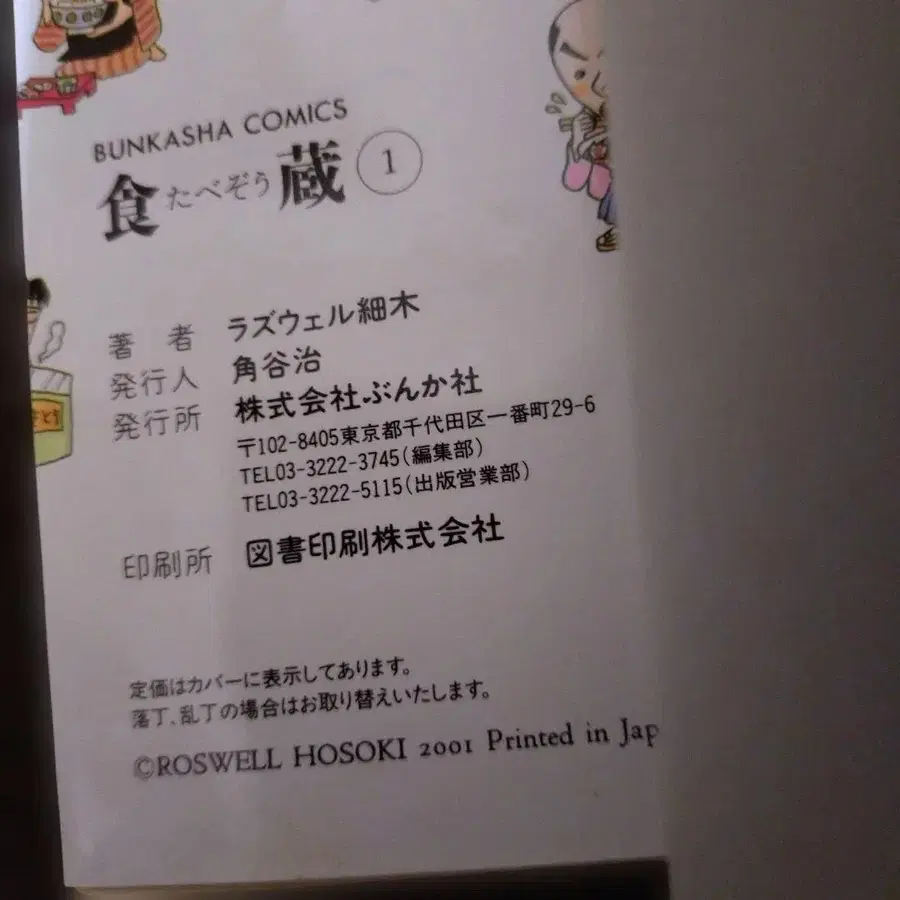 BUNKASHA COMICS
食たべぞう蔵 1
著 者 ラズウェル細木
発行人 角谷治
発行所 株式会社ぶんか社
〒102-8405東京都千代田区一番町29-6
TEL03-3222-3745(編集部)
TEL03-3222-5115(出版営業部)
印刷所 図書印刷株式会社
定価はカバーに表示してあります。
落丁、乱丁の場合はお取り替えいたします。
©ROSWELL HOSOKI 2001 Printed in Jap